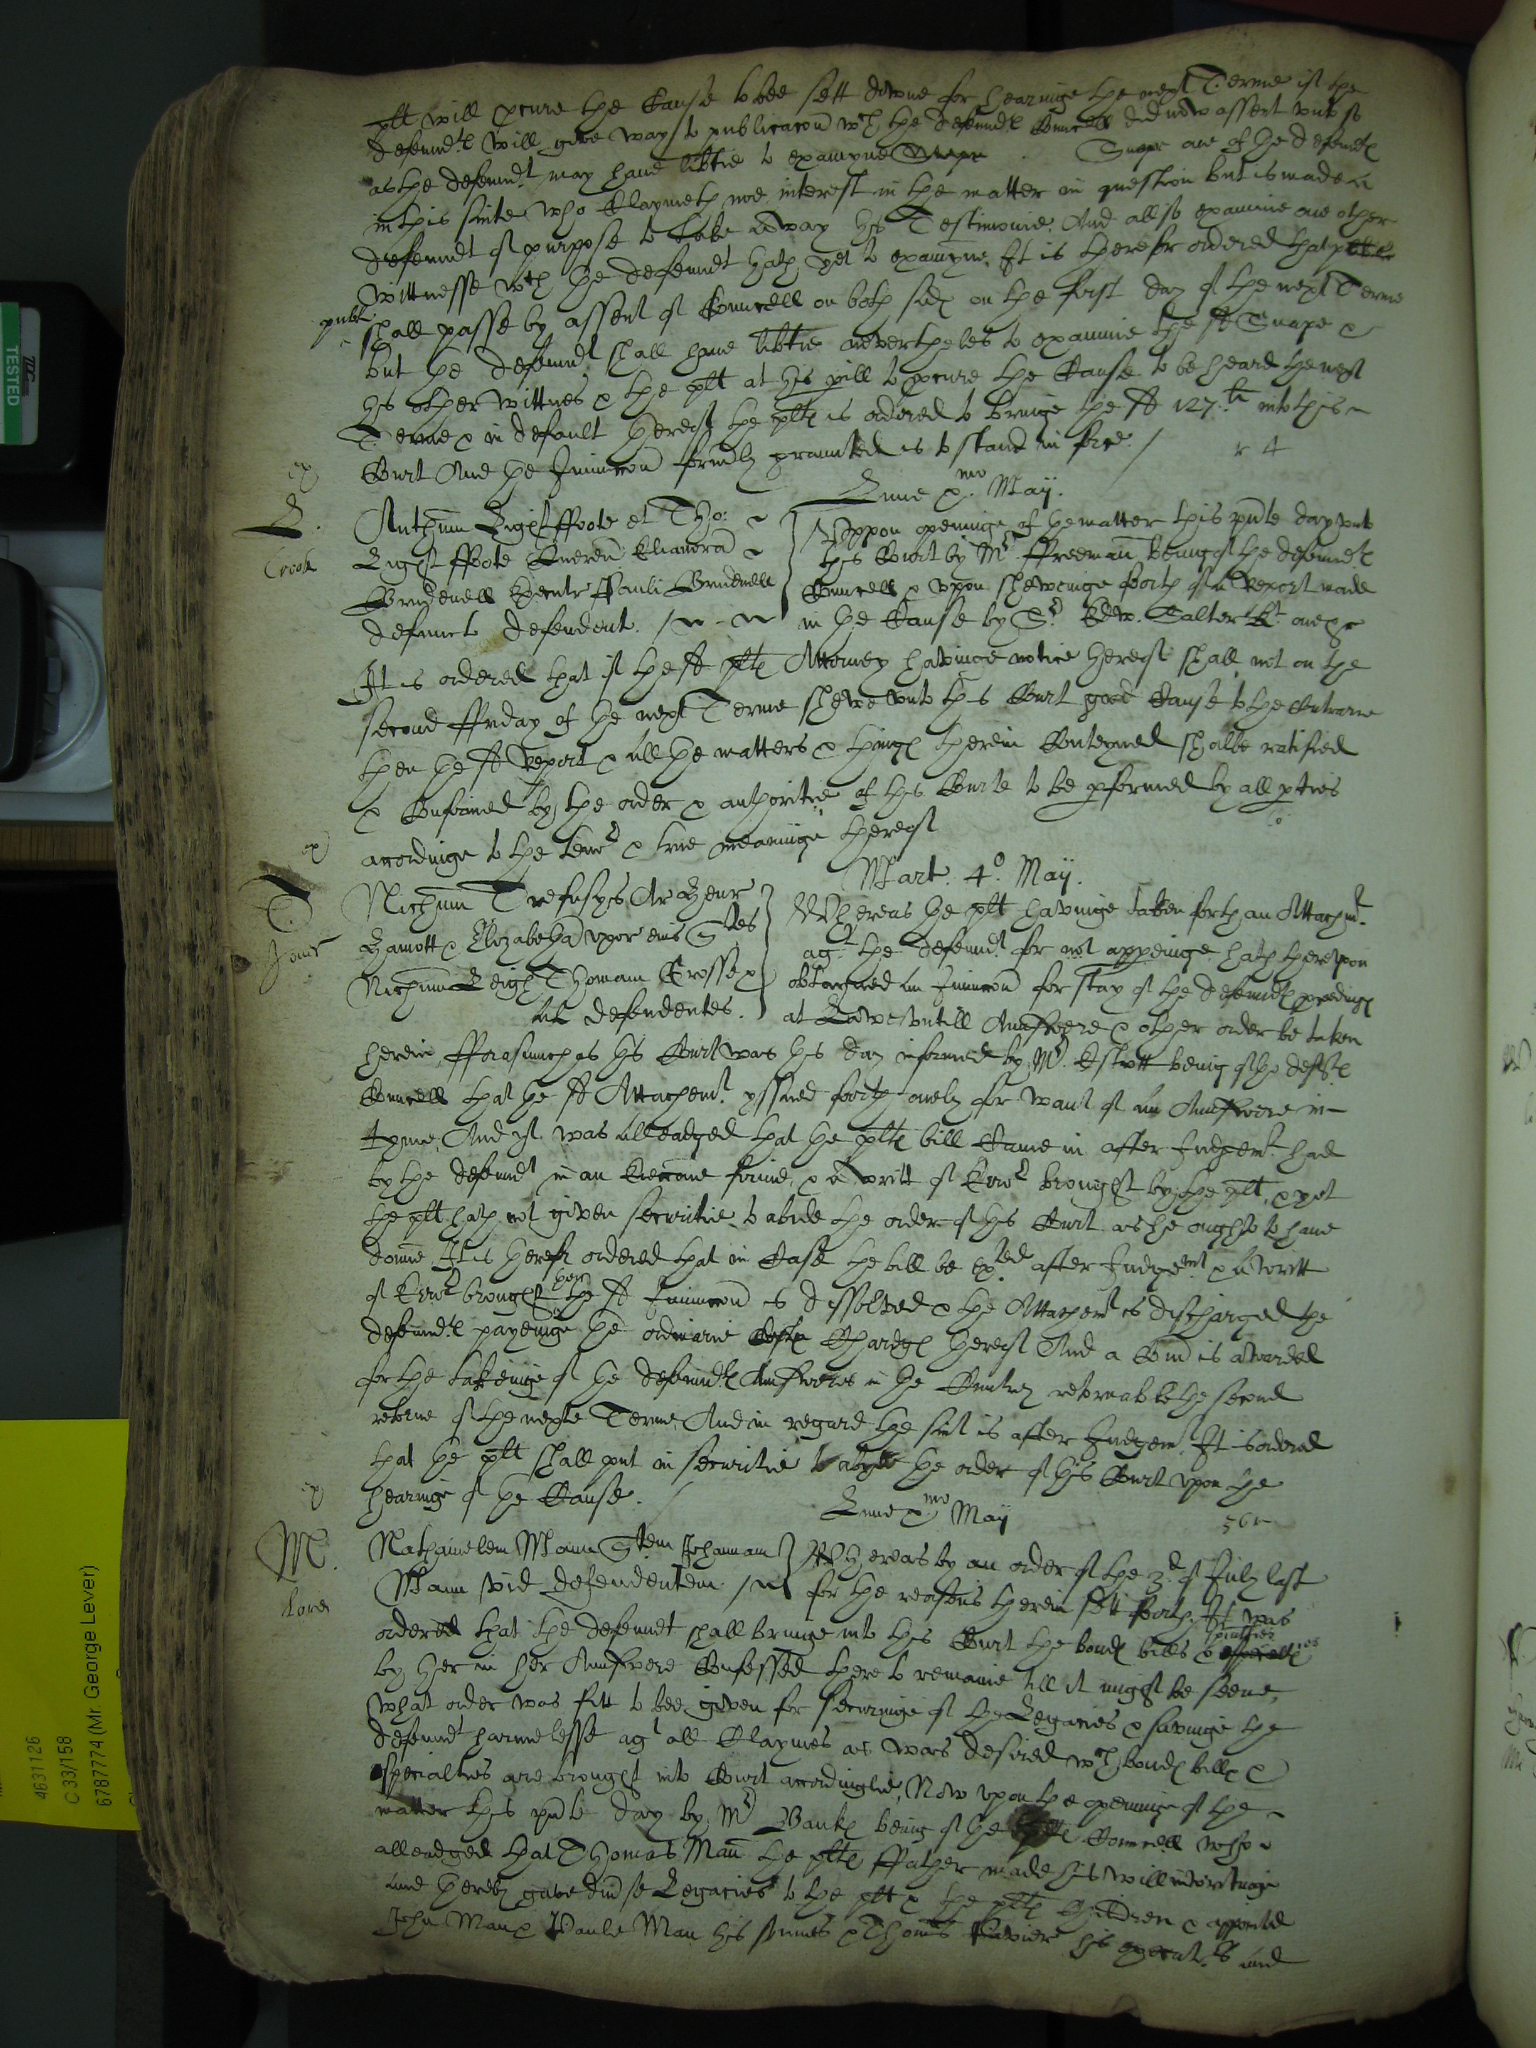 plt will pcure the Cause to bee sett downe for hearinge the next Terme if the
defend:te will give way to publicacon wch the defend:te Councell did now assent unto so
as the defend:t may have libtie to examyne Snape Snape one of the defend:te
in this suite who Claymeth noe interest in the matter in question but is made a
defend:t of purpose to take away his Testimonie And allso examine one other
wittnesse wch the defend:t hath yet to examyne. It is therefore ordered that
publ: shall passe by assent of Councell on both sides on the first day of the next Terme
but the defend:t shall have libtie neverthelesse to examine the sd Snape &
his other wittnes & the plt at his pill to pcure the Cause to be heard the next
Terme & in default hereof the plte is ordered to bringe the sd 127:li into this
Court And the Iniuncon formly graunted is to stand in force /
r 4
Lune x:mo May.
ex
L.
Crook
Anthm Lightffoote et Tho:
Lightffoote Queren Elianora
Brudenell Executr Pauli Brudenell
defuncti defendent.
Uppon openinge of the matter this pnte day unto
this Court by Mr ffreeman beinge of the defend:te
Councell & uppon shewinge forth of a Report made
in the Cause by Sr Edw. Salter Kt one &c
It is ordered that if the sd plte Attorney havinge notice hereof shall not on the
second ffriday of the next Terme shewe unto this Court good Cause to the Contrarie
then the sd report & all the matters & things therein Conteyned shalbe ratified
& Confirmed by the order & authoritie of this Courte to be pformed by all pties
accordinge to the tenor & true meaninge thereof
Mart. 4:o May.
ex
T
Jones
Nichum Trefusys Ar
& Elizabetha uxor eius Qtes
Nichum Leigh Thomam Crosse &
al defendentes.
Whereas the plt havinge taken forth an Attachmt
agt the defend:t for not appeinge hath thereupon
obtayned an Iniuncon for stay of the defend:te pceedings
at Lawe untill Answere & other order be taken
herein fforasmuch as this Court was this day informed by Mr Estcott being of the defte
Councell that the sd Attachemt yssued forth onely for want of an Answere in
tyme, And yt was alleadged that the plte bill Came in after Iudgemt had
by the defend:t in an Eieccone firme, & a writt of Error brought by the plt, & yet
the plt hath not given securitie to abide the order of this Court as he ought to have
donne It is therefore ordered that in Case the bill be exted after Iudgemt & a writt
of Error brought then the sd Iniuncon is dissolved & the Attachemt is discharged the
defend:te payeinge the ordinarie Costes Chardges hereof And a Com is awarded
for the takeinge of the defend:te Answeres in the Cuntrey retornable the second
retorne of the nexte Terme, And in regard the suit is after Iudgemt It is ordered
that the plt shall put in securitie to abyde the order of this Court upon the
hearinge of the Cause.
Lune x:mo May
ex
M.
Nathanielem Mann Qtem Iohannam
Mann vid defendentem
Whereas by an order of the 3:d of July last
for the reasons therein sett forth, It was
ordered that the defend:t shall bringe into this Court the bonds bills & specialties
by her in her Answere Confessed there to remaine till it might be seene,
what order was fitt to bee given for securinge of the Legacies & savinge the
defend:t harmelesse agt all Claymes as was desired wch bonds bills &
specialties are brought into Court accordinglie, Now upon the openinge of the
matter this pnte day by Mr Banks being of the plte Councell who
alleadged that Thomas Man the plte ffather made his will in writinge
and thereby gave divse Legacies to the plt & the plte Children & appointed
John Man & Paule Man his sonnes & Thomas his executrs and
4631126
C 33/158
6787774 (Mr. George Lever)
TESTED